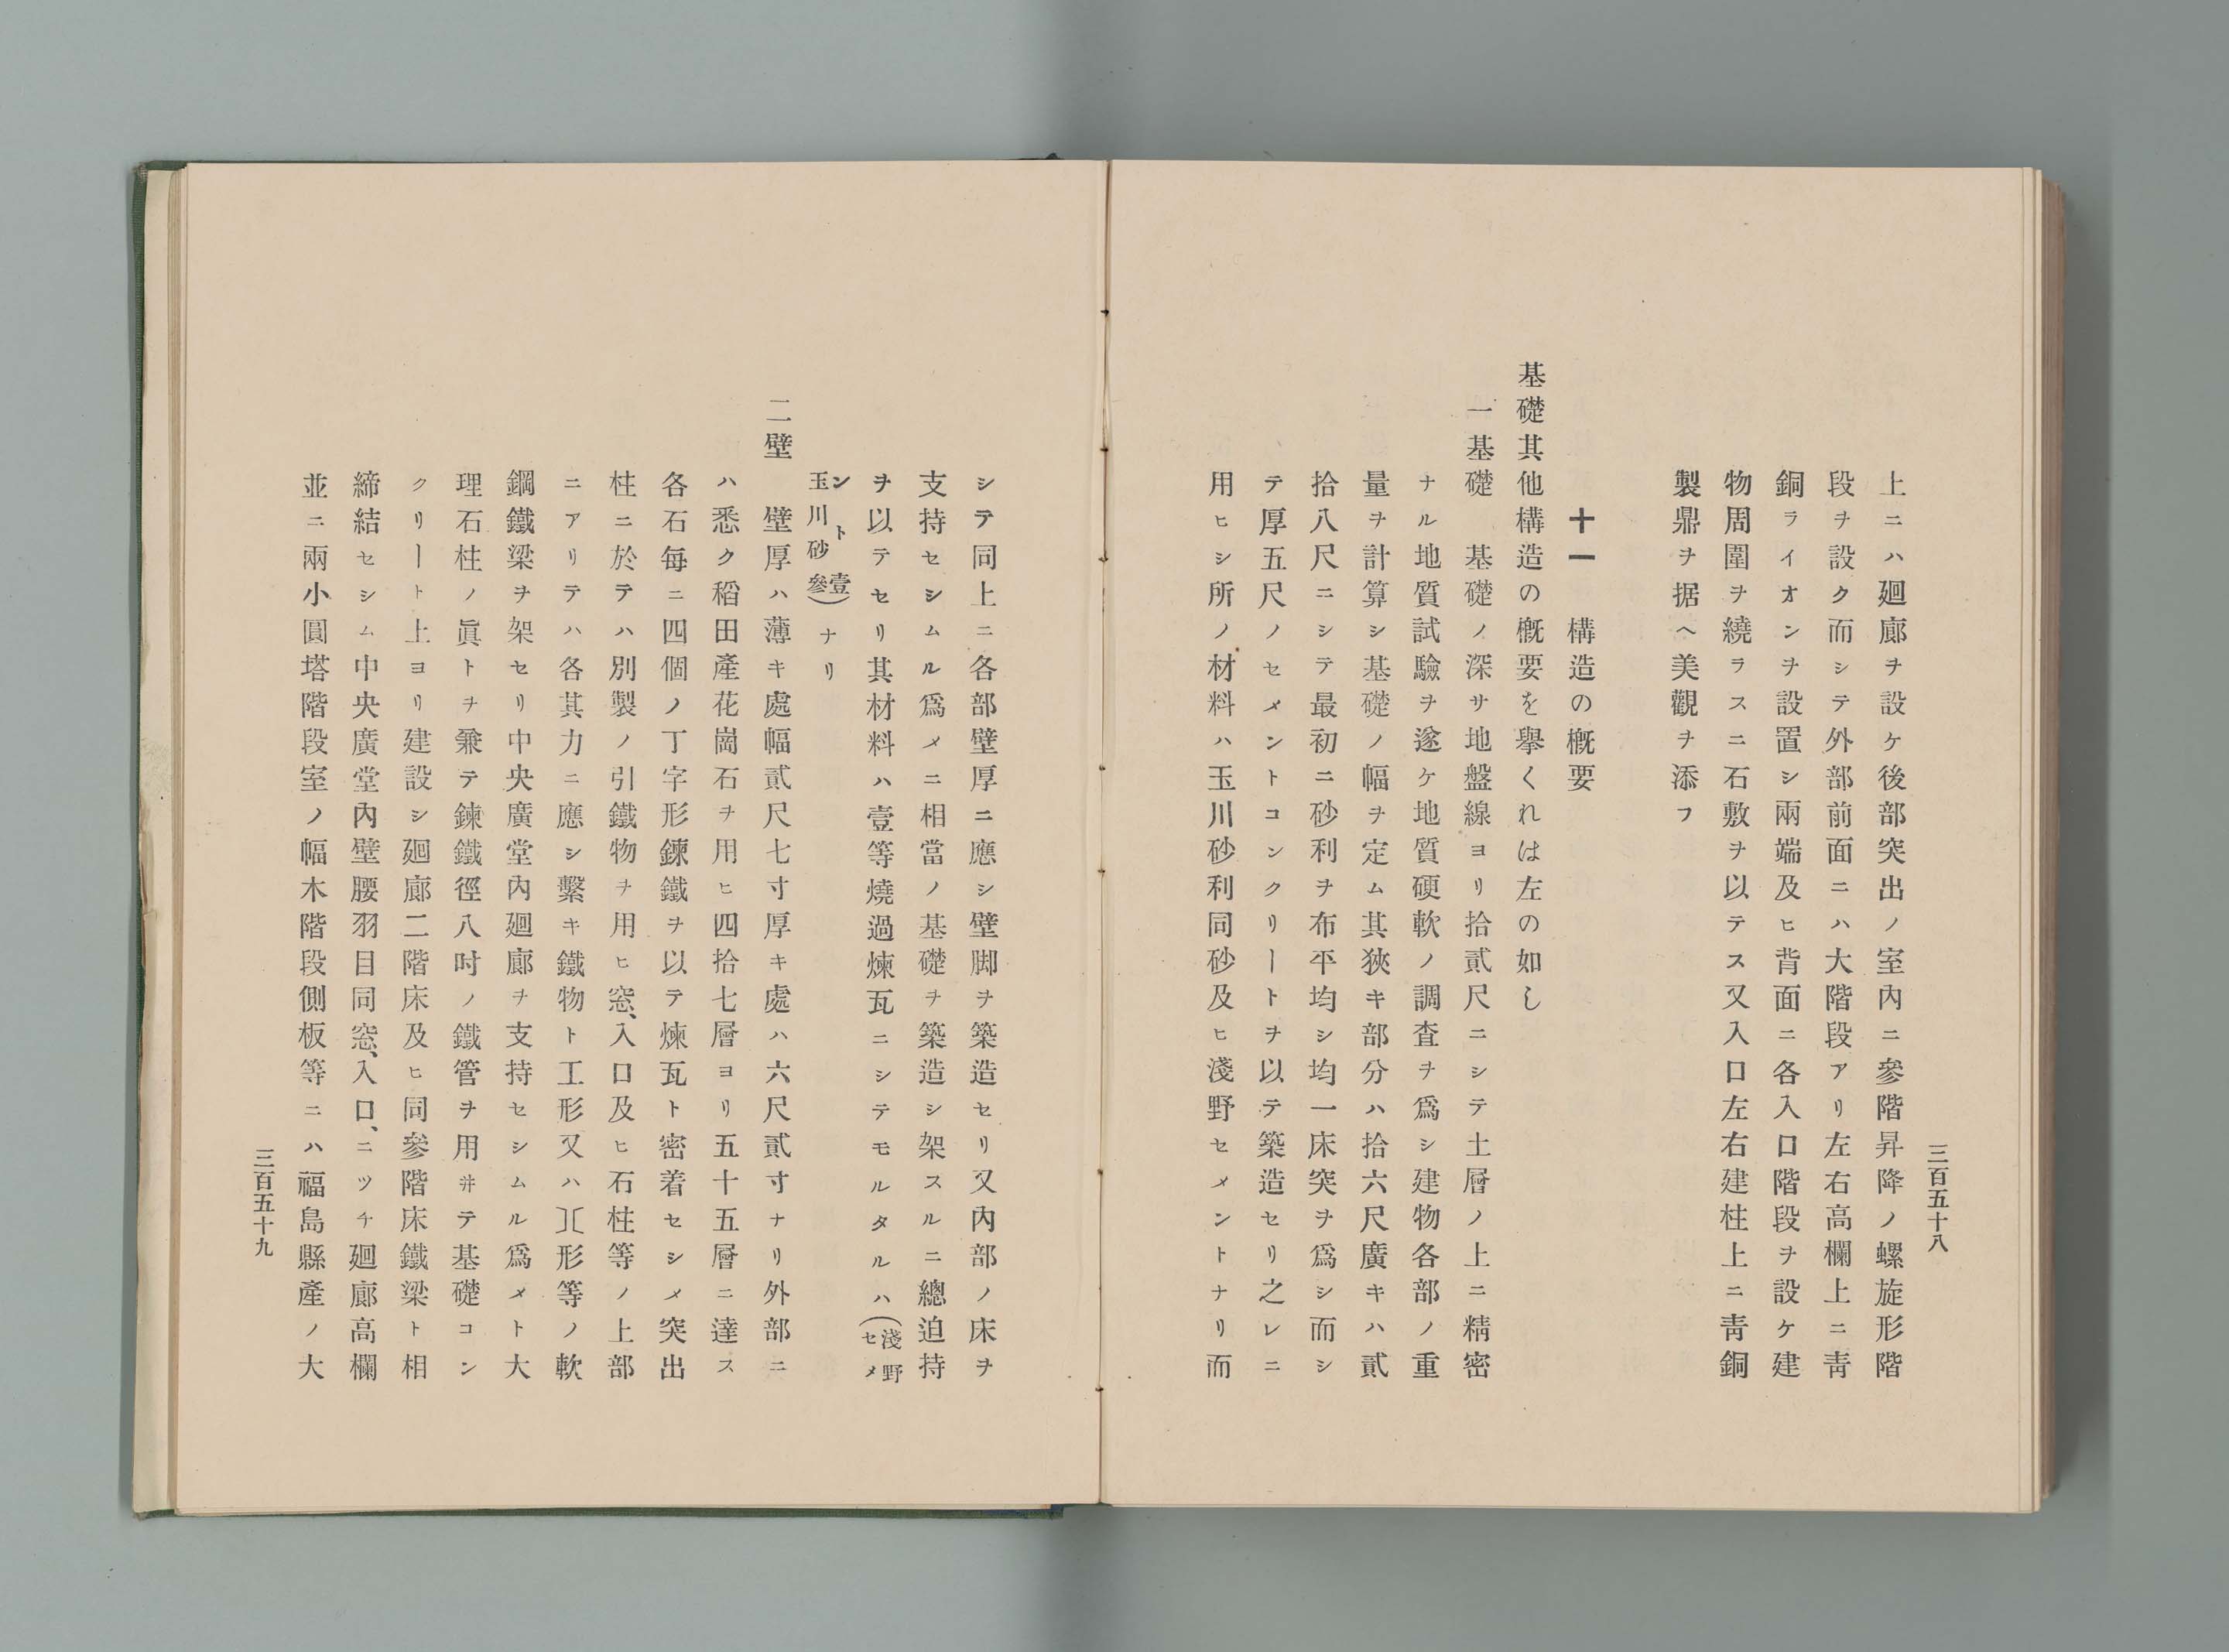 三百五十八
上ニハ廻廊ヲ設ケ後部突出ノ室內ニ參階昇降ノ螺旋形階
段ヲ設ク而シテ外部前面ニハ大階段アリ左右高欄上ニ靑
銅ライオンヲ設置シ兩端及ヒ背面ニ各入口階段ヲ設ケ建
物周圍ヲ繞ラスニ石敷ヲ以テス又入口左右建柱上ニ靑銅
製鼎ヲ据ヘ美觀ヲ添フ
十一　構造の槪要
基礎其他構造の槪要を擧くれは左の如し
一基礎　基礎ノ深サ地盤線ヨリ拾貳尺ニシテ土層ノ上ニ精密
ナル地質試驗ヲ遂ケ地質硬軟ノ調査ヲ爲シ建物各部ノ重
量ヲ計算シ基礎ノ幅ヲ定ム其狹キ部分ハ拾六尺廣キハ貳
拾八尺ニシテ最初ニ砂利ヲ布平均シ均一床突ヲ爲シ而シ
テ厚五尺ノセメントコンクリートヲ以テ築造セリ之レニ
用ヒシ所ノ材料ハ玉川砂利同砂及ヒ淺野セメントナリ而
シテ同上ニ各部壁厚ニ應シ壁脚ヲ築造セリ又內部ノ床ヲ
支持セシムル爲メニ相當ノ基礎ヲ築造シ架スルニ總迫持
ヲ以テセリ其材料ハ壹等燒過煉瓦ニシテモルタルハ(淺野セメ
ント壹玉川砂參)ナリ
二壁　壁厚ハ薄キ處幅貳尺七寸厚キ處ハ六尺貳寸ナリ外部ニ
ハ悉ク稻田產花崗石ヲ用ヒ四拾七層ヨリ五十五層ニ達ス
各石每ニ四個ノ丁字形鍊鐵ヲ以テ煉瓦ト密着セシメ突出
柱ニ於テハ別製ノ引鐵物ヲ用ヒ窓、入口及ヒ石柱等ノ上部
ニアリテハ各其力ニ應シ繫キ鐵物ト工形又ハ][形等ノ軟
鋼鐵梁ヲ架セリ中央廣堂內廻廊ヲ支持セシムル爲メト大
理石柱ノ眞トヲ兼テ鍊鐵徑八吋ノ鐵管ヲ用井テ基礎コン
クリート上ヨリ建設シ廻廊二階床及ヒ同參階床鐵梁ト相
締結セシム中央廣堂內壁腰羽目同窓、入口、ニツチ廻廊高欄
並ニ兩小圓塔階段室ノ幅木階段側板等ニハ福島縣產ノ大
三百五十九